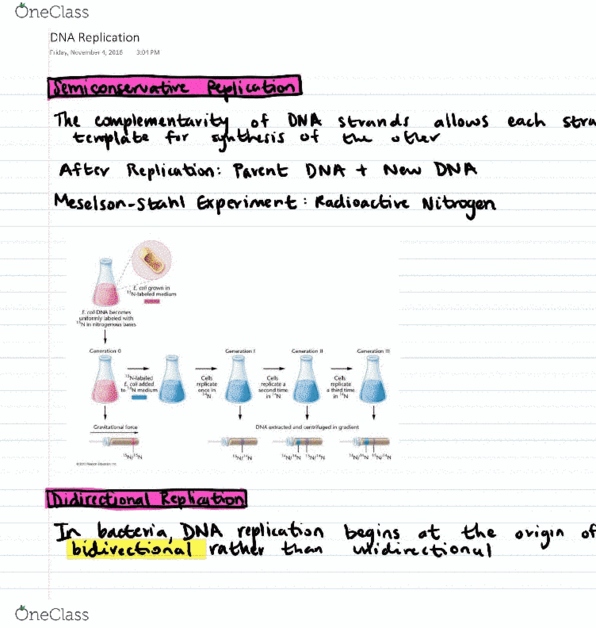 OneClass
DNA Replication
Friday, November 4, 2016 3:04 PM
Semiconservative Replication
The complementarity of DNA strands allows each stra
template for synthesis of the other
After Replication: Parent DNA + New DNA
Meselson-Stahl Experiment: Radioactive Nitrogen
E. coli grown in
15N-labeled medium
E. coli DNA becomes
uniformly labeled with
15N in nitrogenous bases
Generation 0 Generation I Generation II Generation III
15N-labeled
E. coli added
to 14N medium
Cells
replicate
once in
14N
Cells
replicate a
second time
in 14N
Cells
replicate
a third time
in 14N
Gravitational force DNA extracted and centrifuged in gradient
15N/15N 15N/14N 14N/14N 15N/14N 14N/14N 15N/14N
Didirectional Replication
In bacteria, DNA replication begins at the origin of
bidirectional rather than unidirectional
OneClass